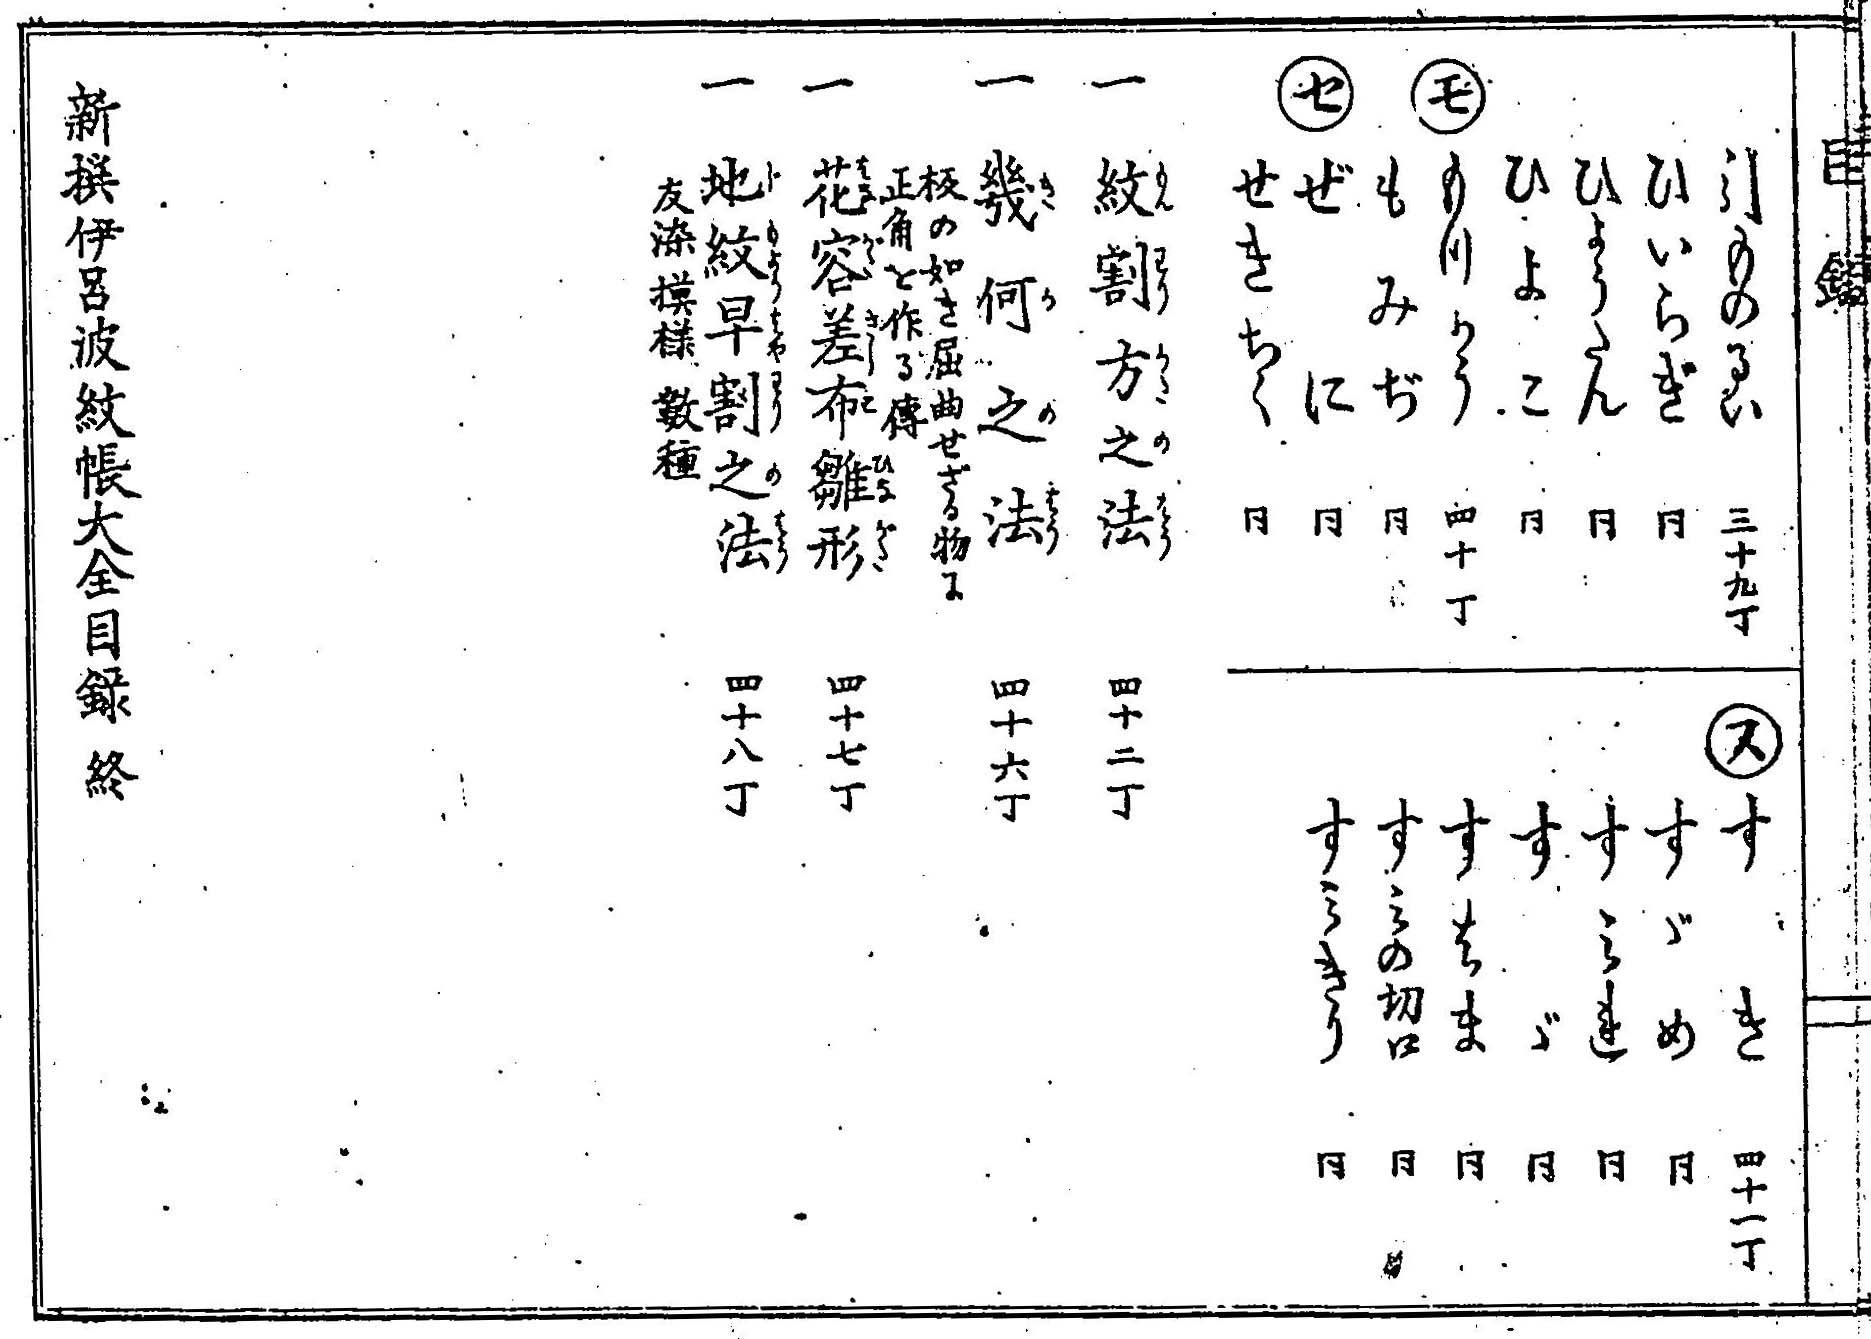 目録
引ものるい 三十九丁
ひいらぎ 同
ひようたん 同
ひよこ 同
モ
もつかう 四十丁
もみぢ 同
セ
ぜに 同
せきちく 同
ス
すき 四十一丁
すゞめ 同
すみれ 同
すゞ 同
すはま 同
すみの切口 同
すみきり 同
一 紋割方之法 四十二丁
一 幾何之法 四十六丁
板の如き屈曲せざる物に
正角を作る傳
一 花容差布雛形 四十七丁
一 地紋早割之法 四十八丁
友染摸様數種
新撰伊呂波紋帳大全目録終